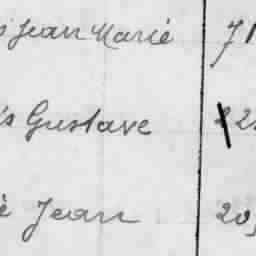 s Jean Marié 71
is Gustave 22
è Jean 20,